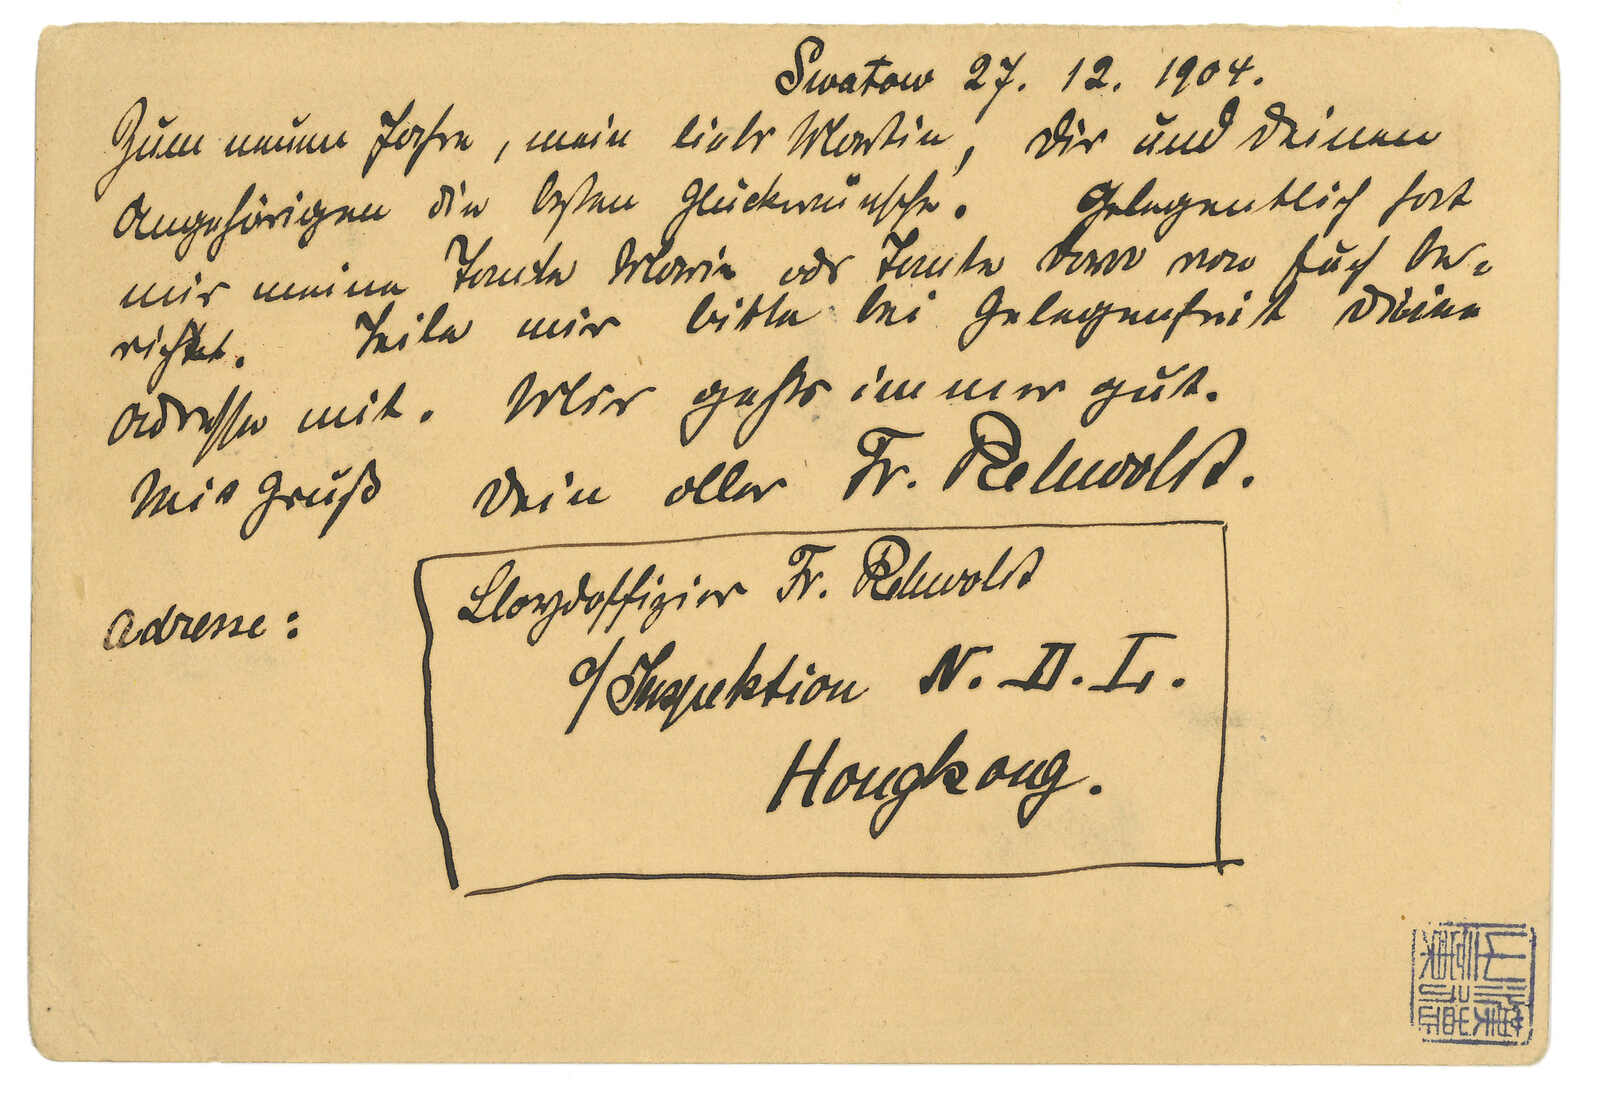 Swatow 27. 12. 1904.
Zum neuen Jahre, mein lieber Martin, Dir und Deinen
Angehörigen die besten Glückwünsche. Gelegentlich hat
mir meine Tante Marie oder Tante von Euch be-
richtet. Teile mir bitte bei Gelegenheit Deine
Adresse mit. Mir gehts immer gut.
Mit Gruß Dein oller Fr. Rehwoldt.
Adresse:
Lloydoffizier Fr. Rehwoldt
c/ Inspektion N. D. L.
Hongkong.